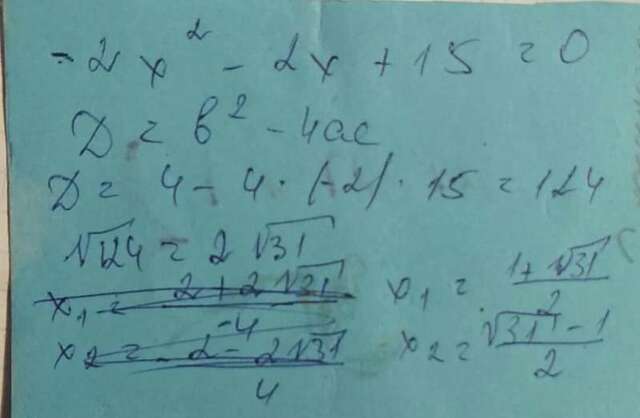 -2x² - 2x + 15 = 0
D = b² - 4ac
D = 4 - 4 · (-2) · 15 = 124
√124 = 2√31
x₁ = (2 + 2√31)/-4
x₂ = (2 - 2√31)/4
x₁ = (1 + √31)/2
x₂ = (√31 - 1)/2